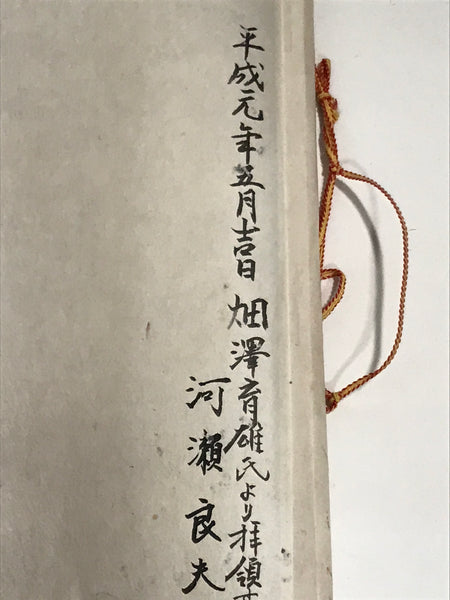 平成元年五月吉日 畑澤育雄氏より拝領
河瀬良夫